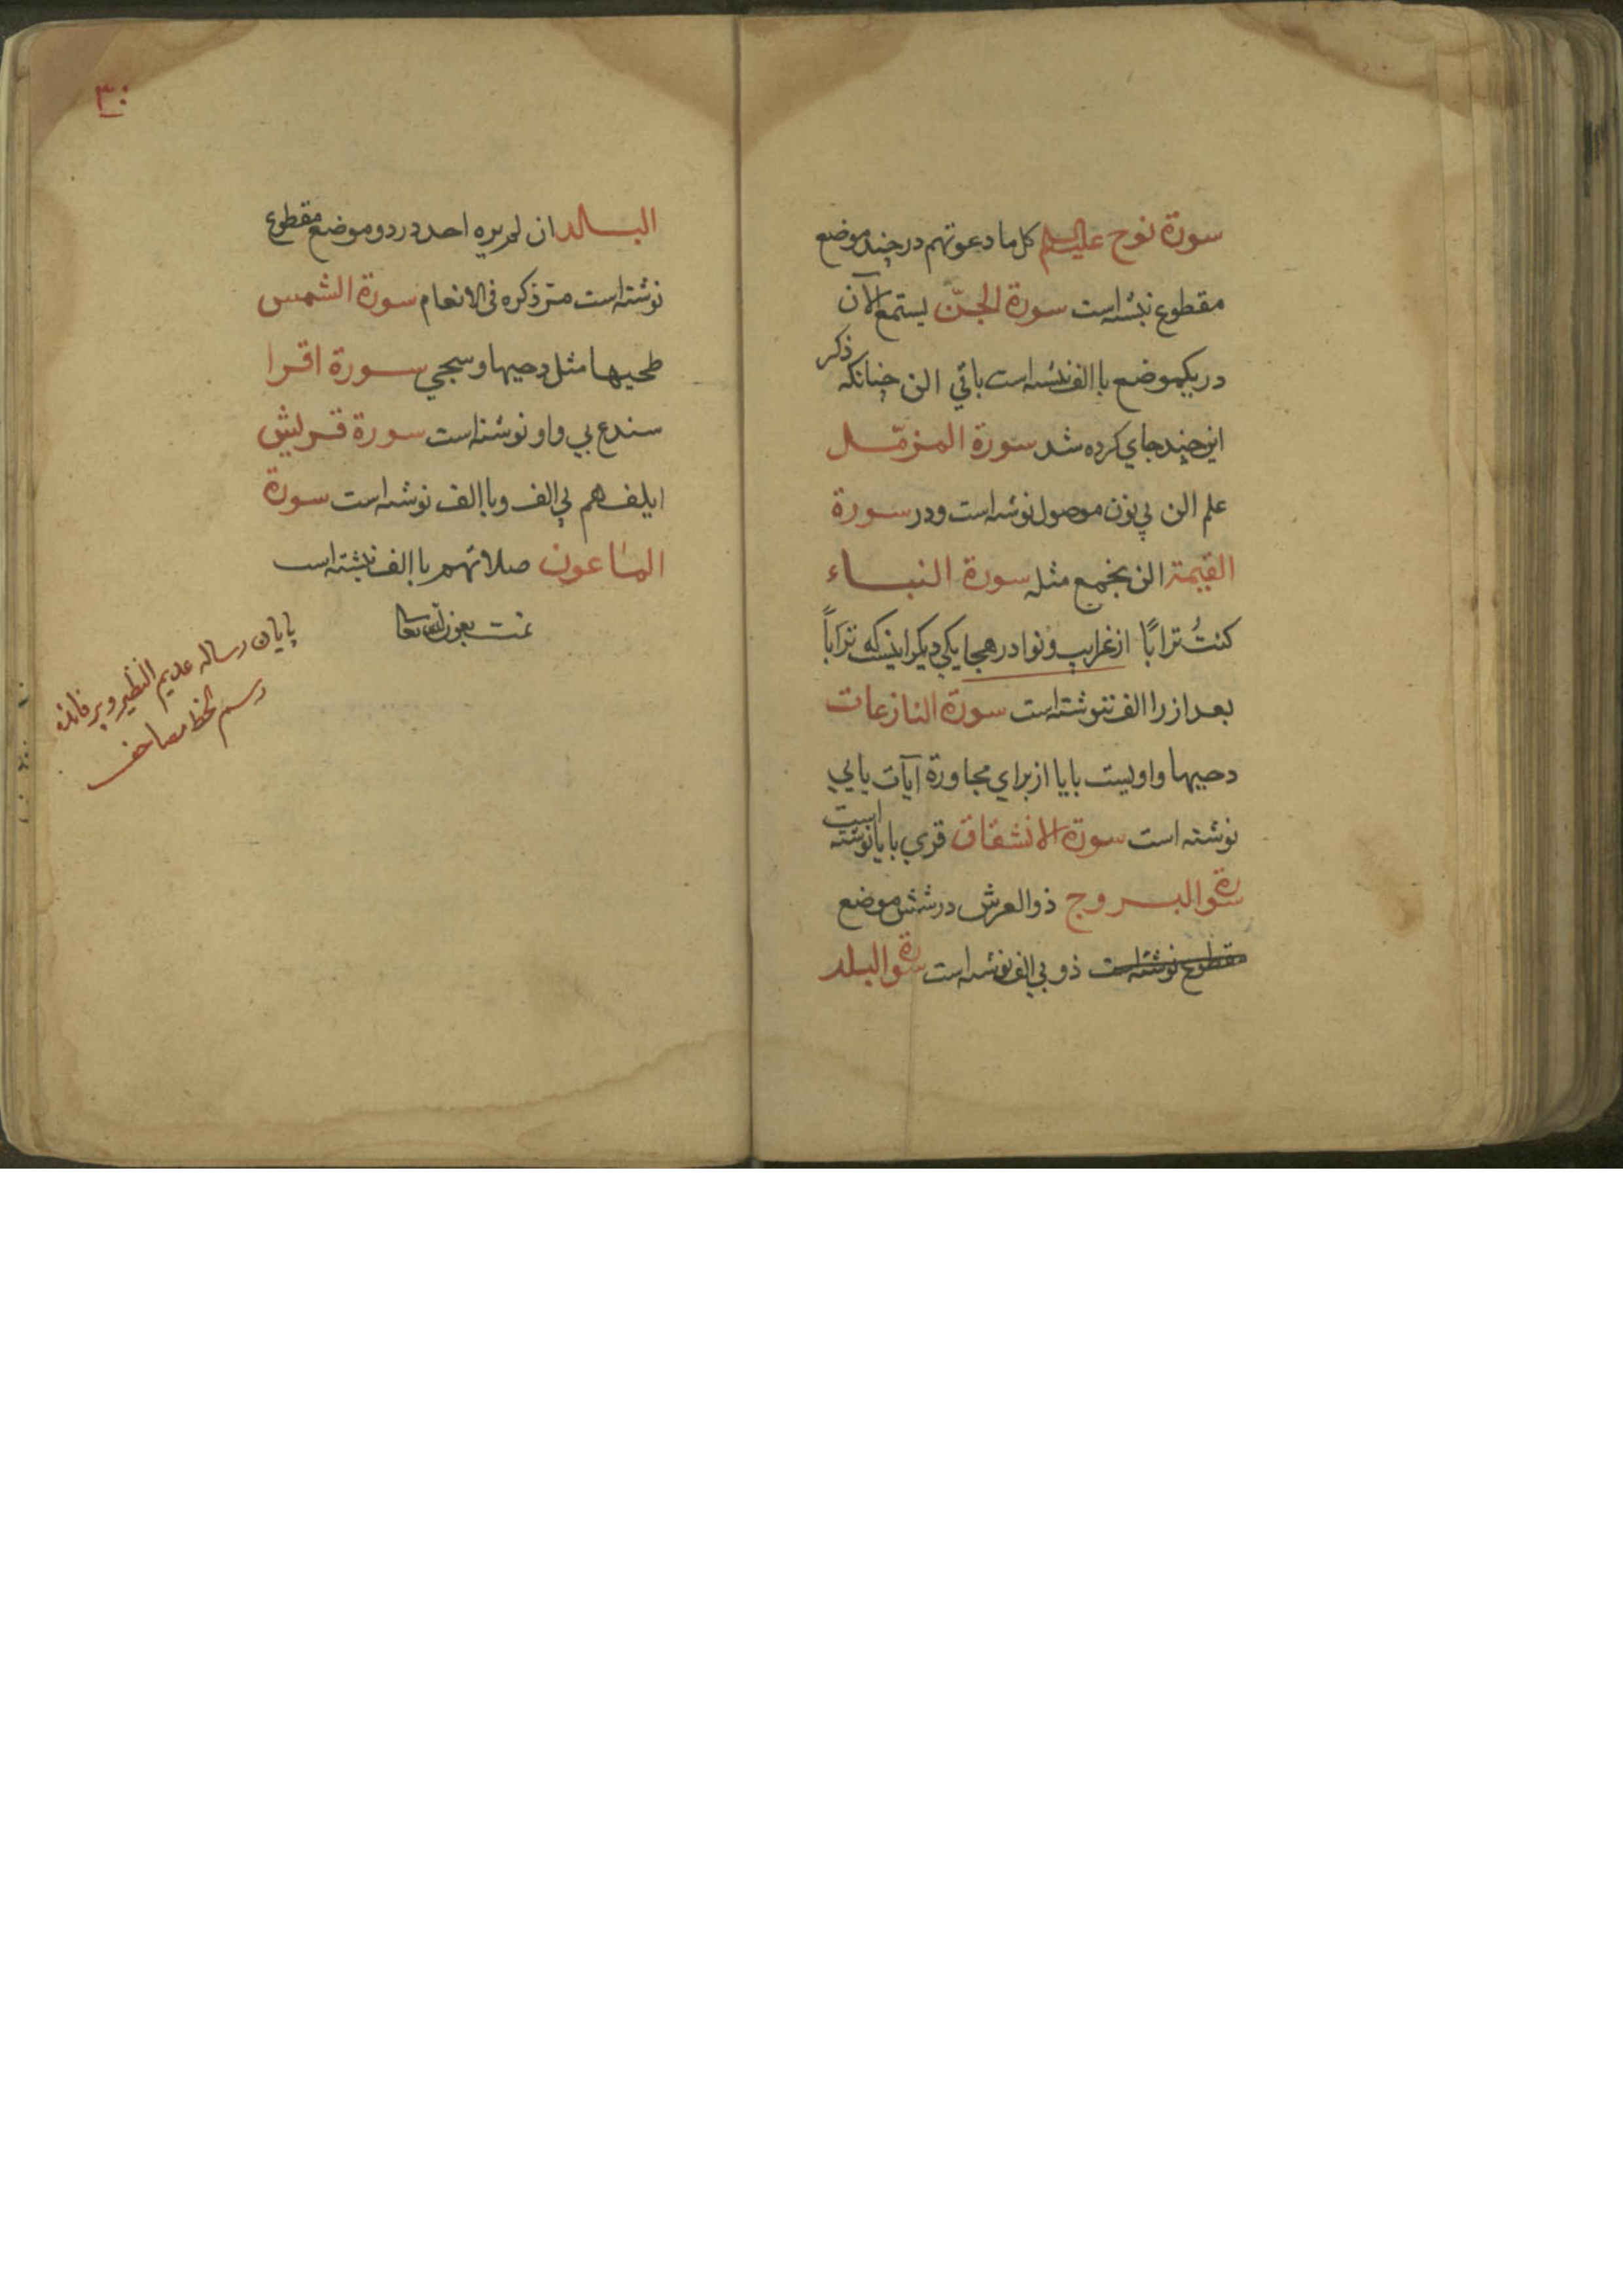 سورة نوح عليه السلم كل ما دعوتهم در چند موضع
مقطوع نبشته است سورة الجنّ يستمع الآن
در يكموضع با الف نبشته است باقي الن چنانكه ذكر
اين چند جاي كرده شد سورة المزمّل
علم الن بي نون موصول نوشته است ودر سورة
القيمة الن نجمع مثله سورة النباء
كنتُ ترابًا از غرايب و نوادر هجا يكي ديگر اينست كه تراباً
بعد از را الف ننوشته است سورة النازعات
دحيها واويست بايا از براي مجاورة آيات يايي
نوشته است سورة الانشقاق قري بايا نوشته است
سورة البروج ذو العرش در شش موضع
مقطوع نوشته است ذو بي الف نوشته است سورة البلد
٣٠
البلد ان لم يره احد در دو موضع مقطوع
نوشته است مرّ ذكره في الانعام سورة الشمس
طحيها مثل دحيها و سجي سورة اقرا
سندع بي واو نوشته است سورة قريش
ايلفهم بي الف وبا الف نوشته است سورة
الماعون صلاتهم با الف نبشته است
تمت بعون الله تعالى
پايان رساله عديم النظير و پر فائده
رسم الخط مصاحف